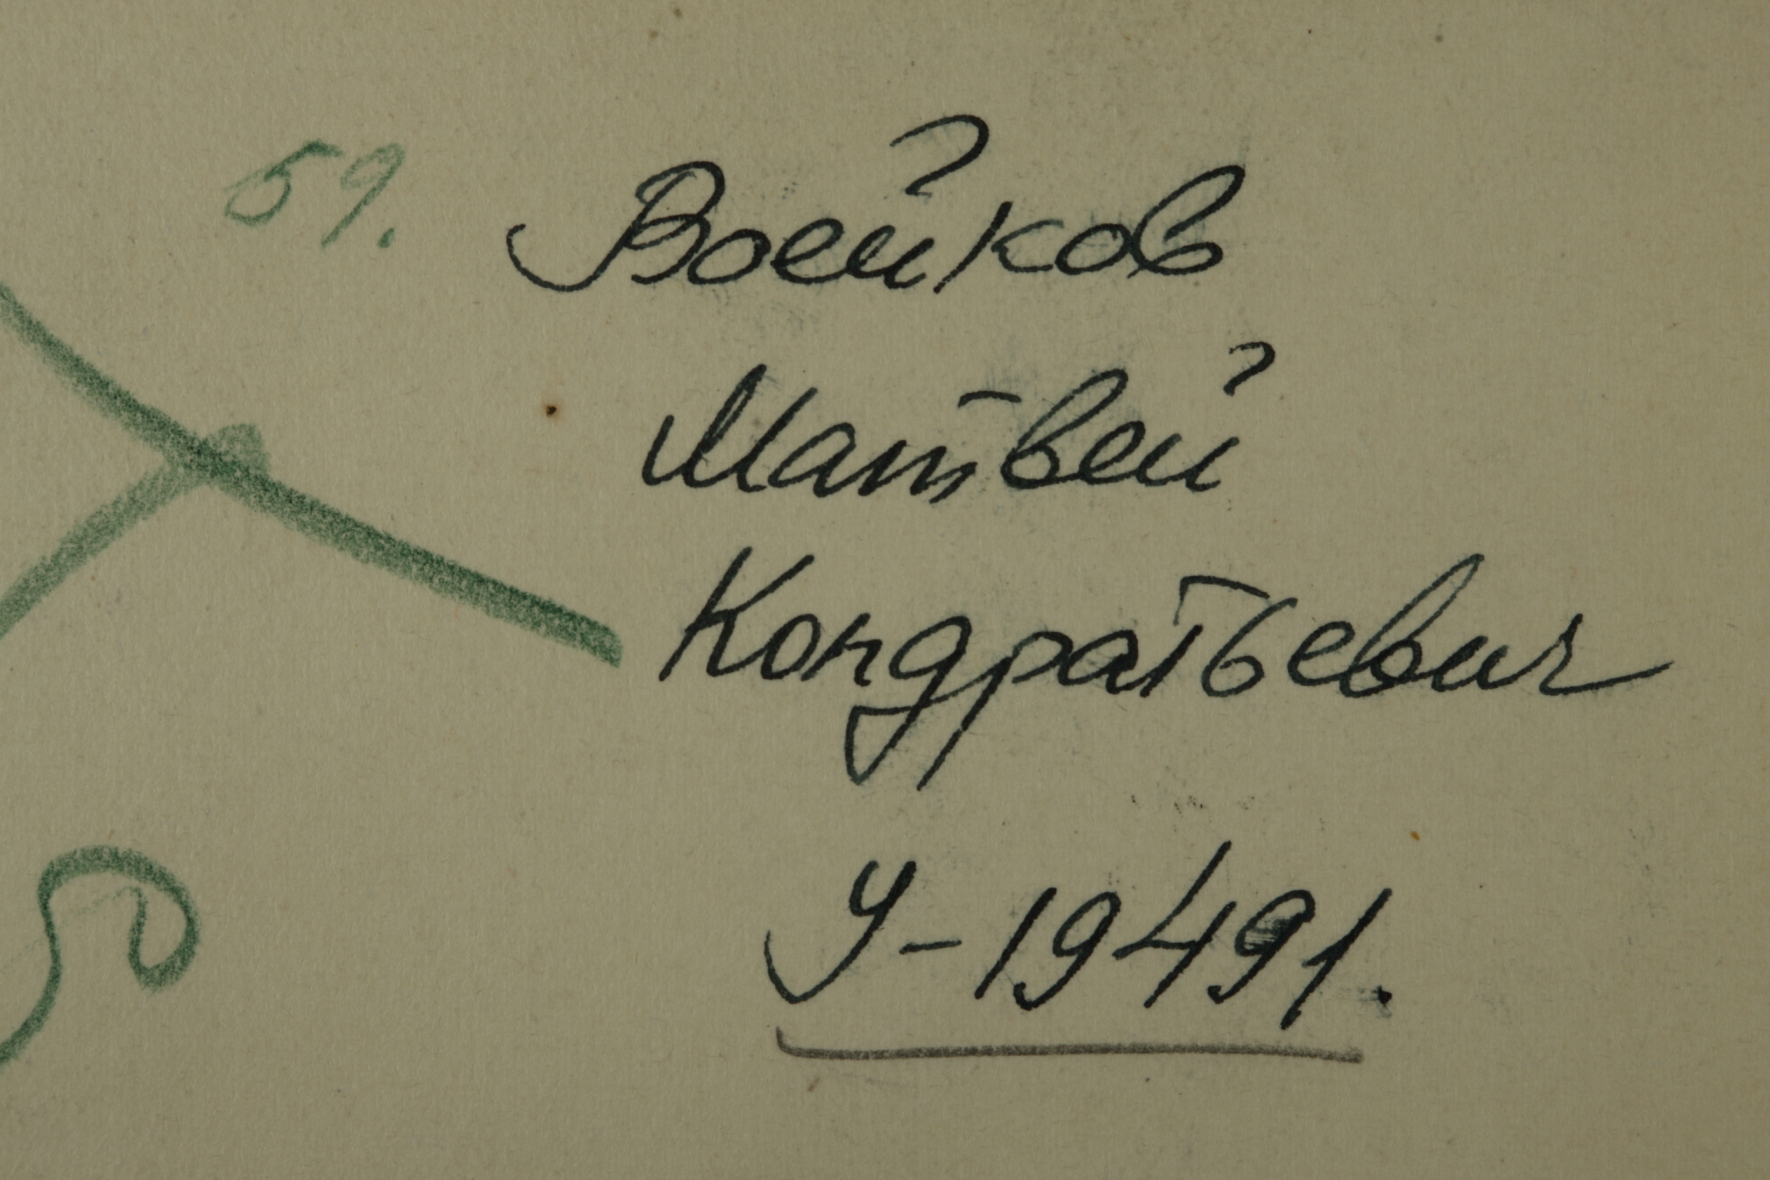 59. Воейков
Матвей
Кондратьевич
У-19491.